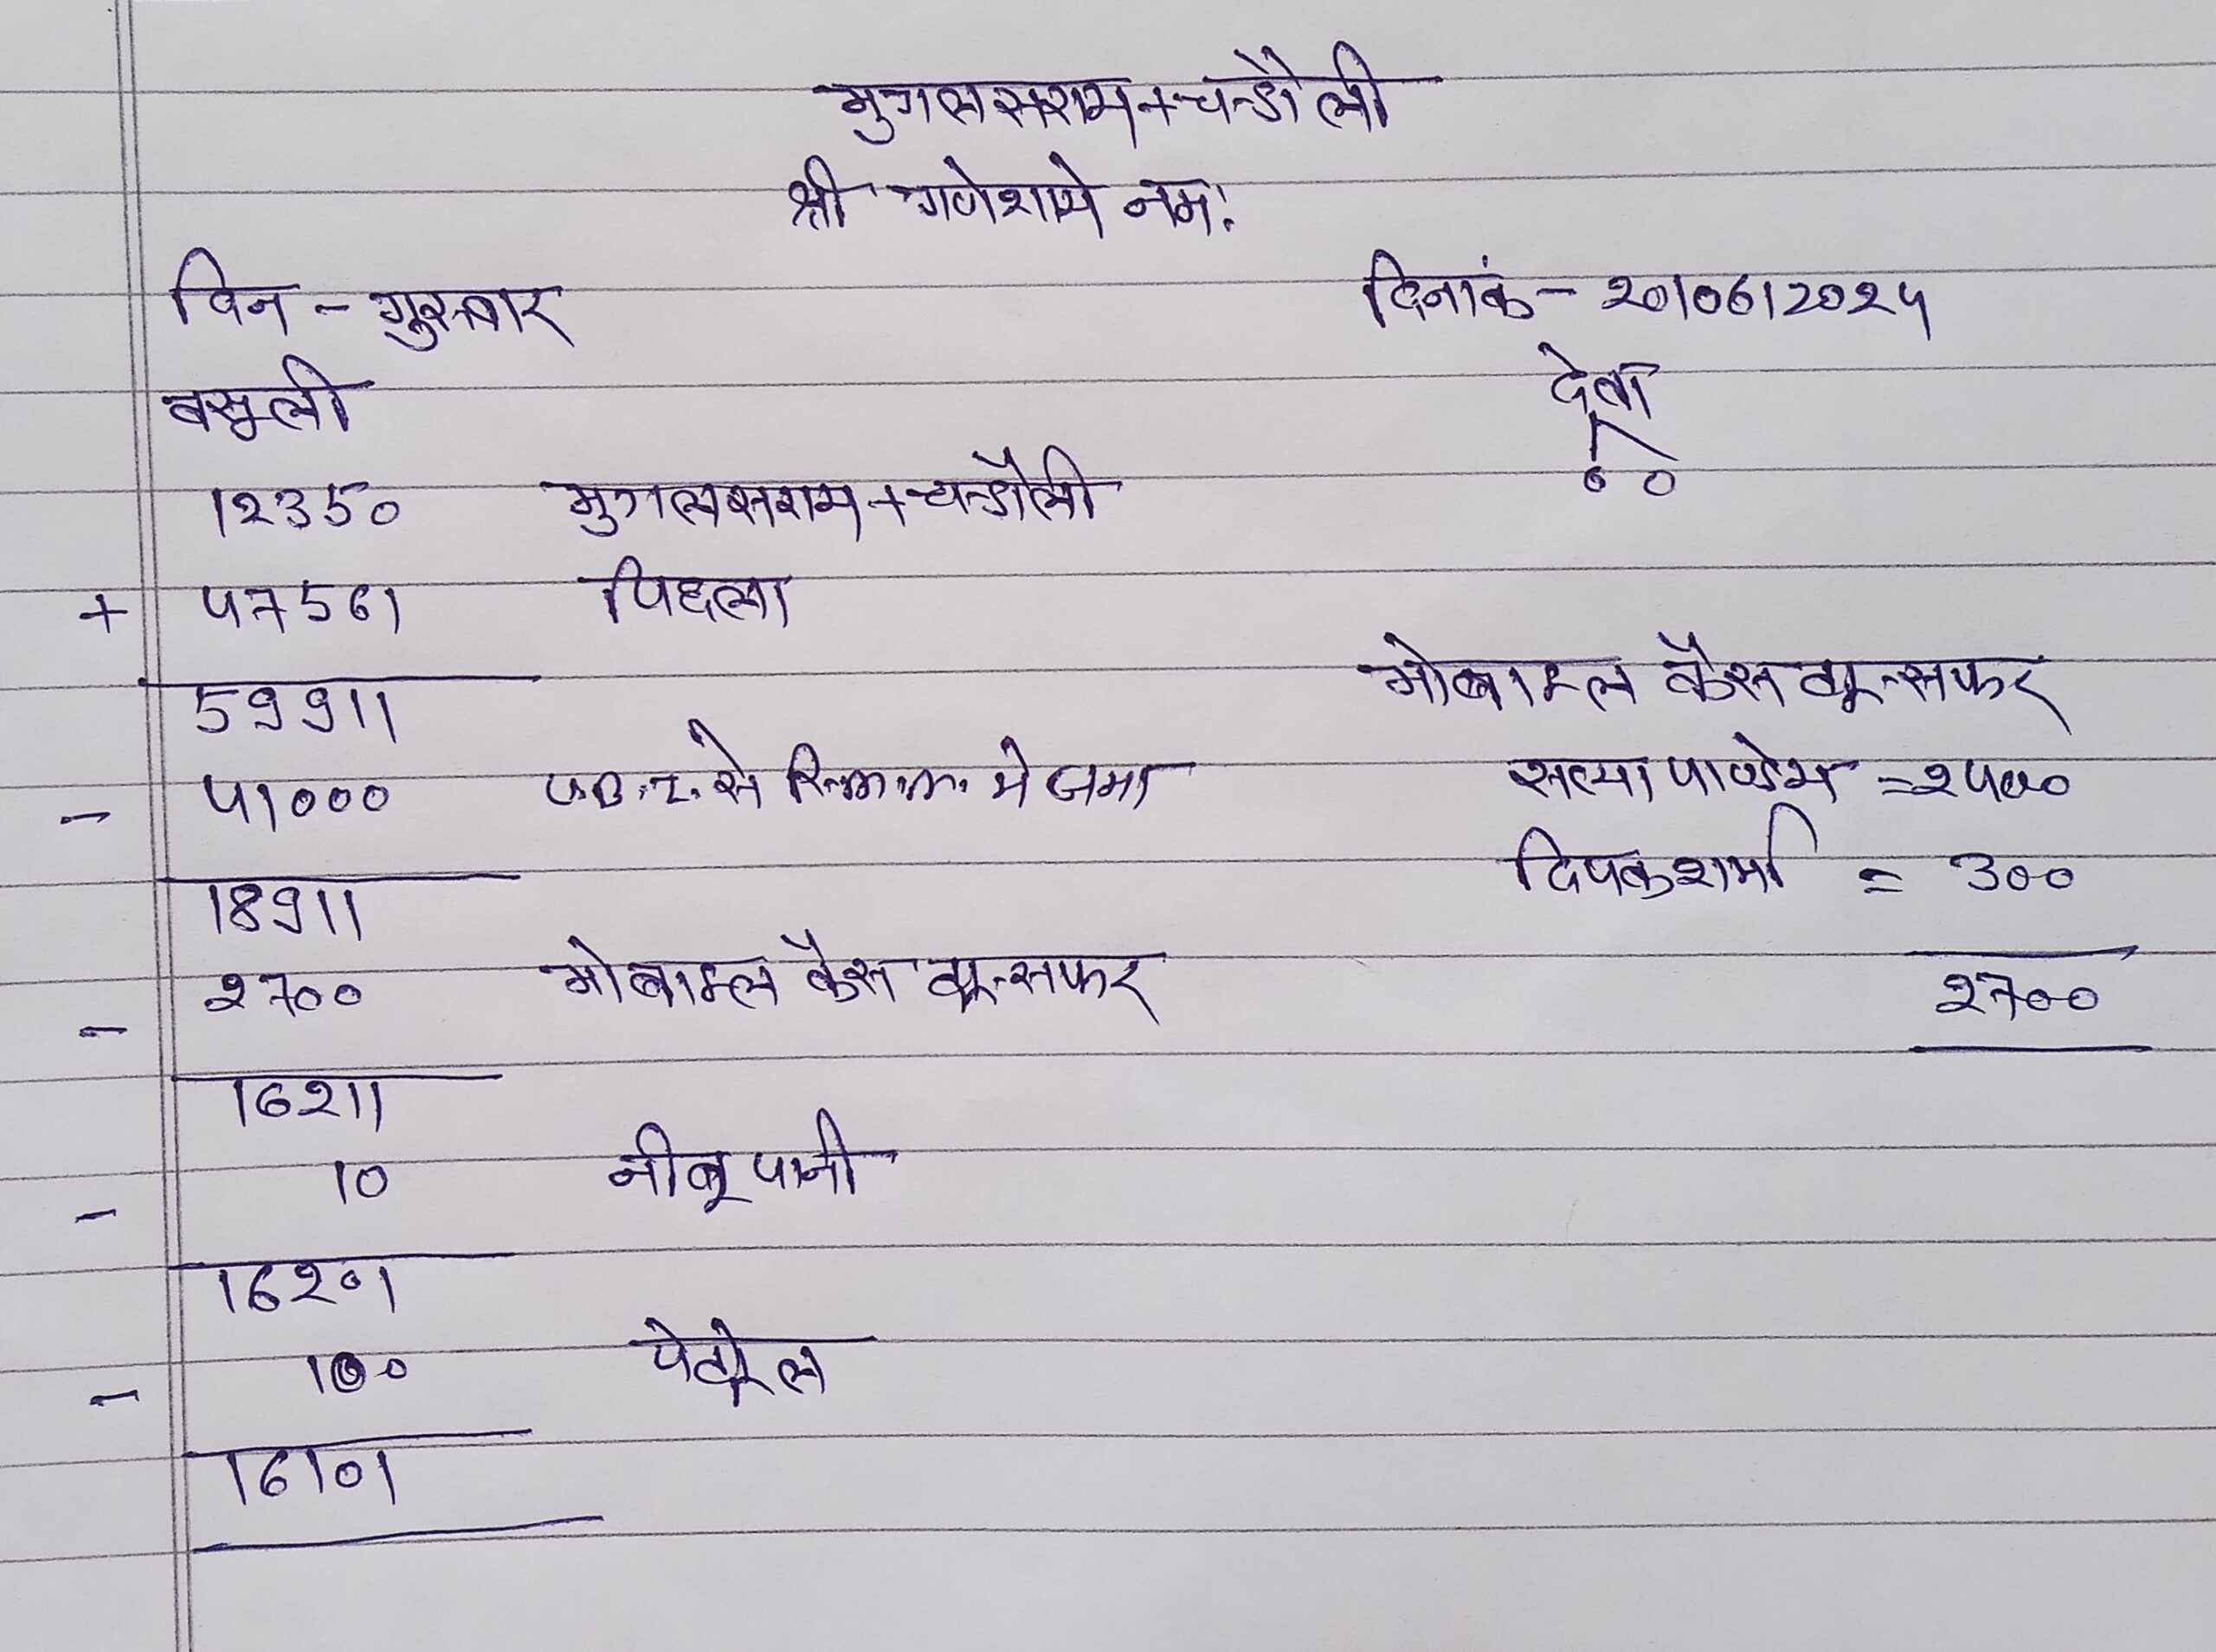 मुगलसराय+चन्डौली
श्री गणेशाये नमः
दिन - गुरुवार दिनांकं - 20/06/2024
वसूली देवा
0 0
12350 मुगलसराय+चन्डौली
+ 47561 पिछला
59911 मोबाइल कैस ट्रान्सफर
- 41000 से में जमा सत्या पाण्डेय = 2400
18911 दिपक शर्मा = 300
- 2700 मोबाइल कैस ट्रान्सफर 2700
16211
- 10 नीबू पानी
16201
- 100 पेट्रोल
16101